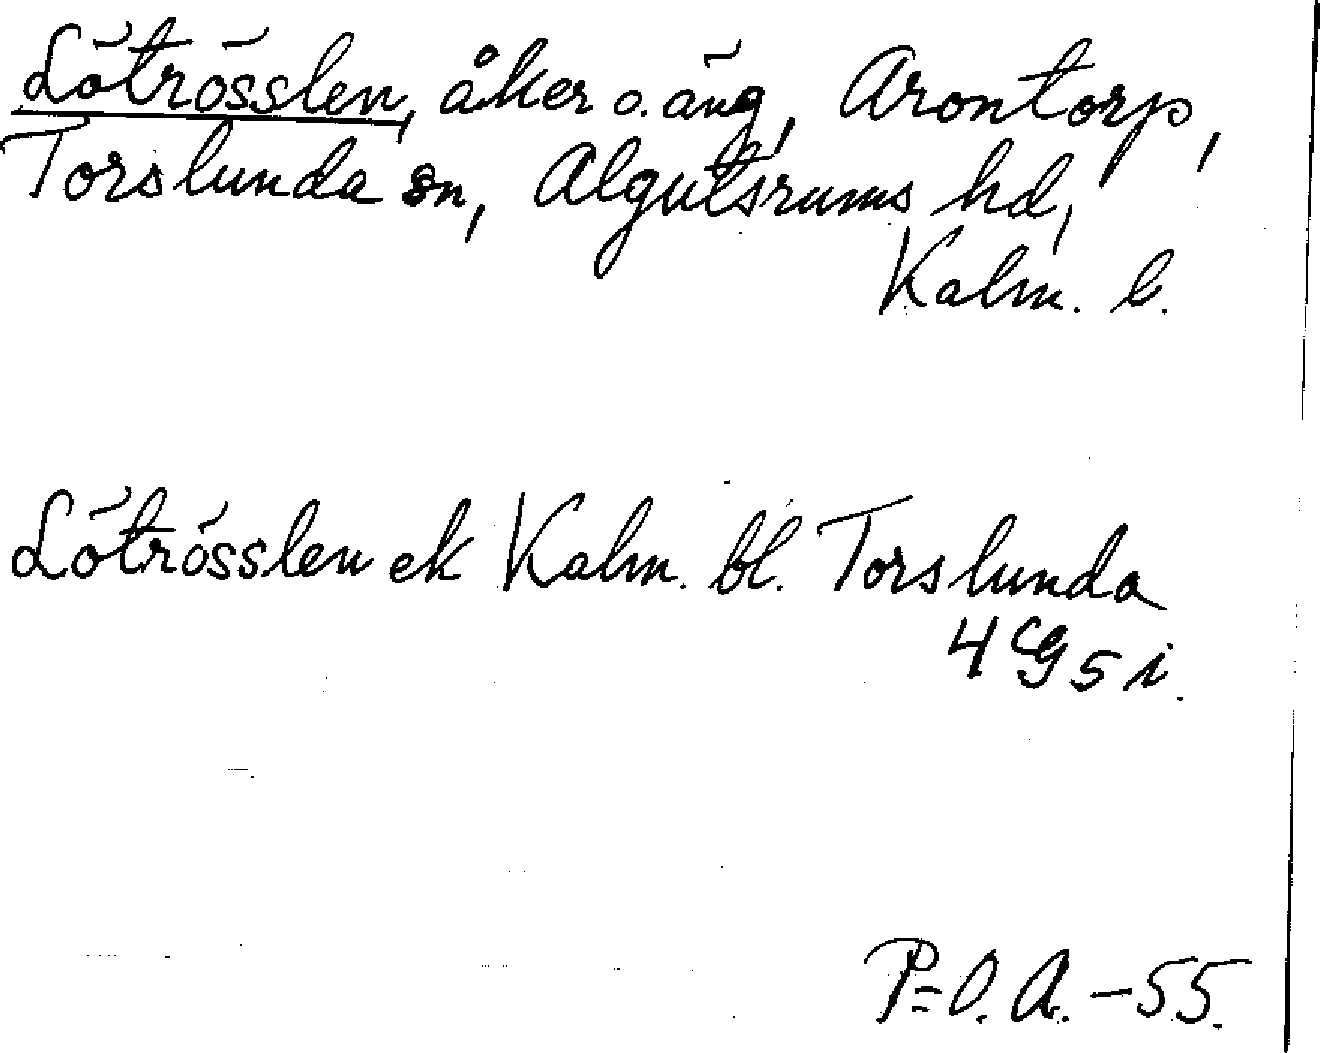 Lötrösslen, åker o. äng, Arontorp,
Torslunda sn, Algutsrums hd,
Kalm. l.
Lötrösslen ek Kalm. bl. Torslunda
4 G 5 i
P=O. A. -55.